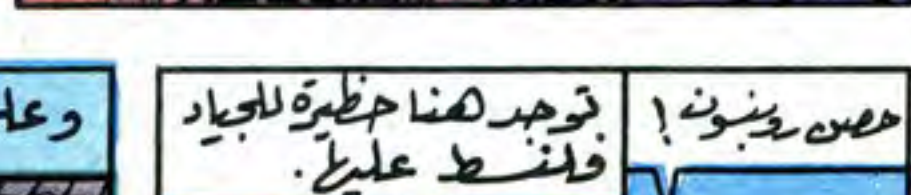 حصن روبنسون !
توجد هنا حظيرة للجياد
فلنسط عليها.
وعلى